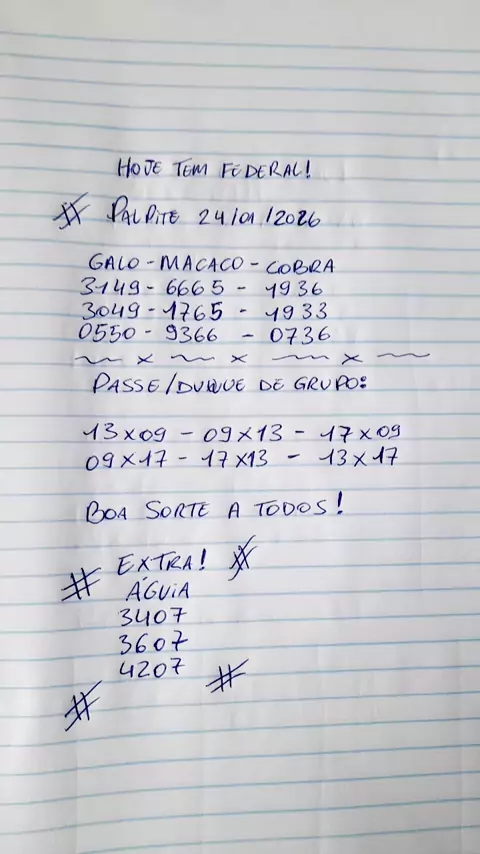 HOJE TEM FEDERAL!
# PALPITE 24/01/2026
GALO - MACACO - COBRA
3149 - 6665 - 1936
3049 - 1765 - 1933
0550 - 9366 - 0736
~ x ~ x ~ x ~
PASSE/DUQUE DE GRUPO:
13x09 - 09x13 - 17x09
09x17 - 17x13 - 13x17
BOA SORTE A TODOS!
# EXTRA! #
ÁGUIA
3407
3607
4207 #
#